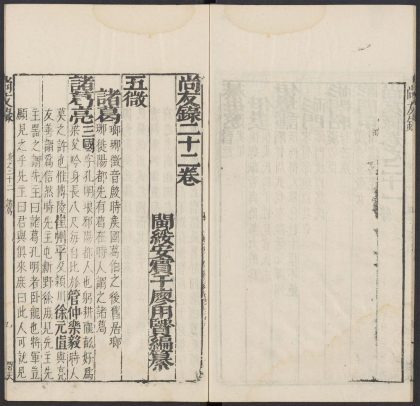 尚友錄二十二卷
閩綏安賓于廖用賢編纂
五微
諸葛
瑯琊徵音殷時矦國葛伯之後舊居瑯
瑯琊徙陽都先有葛在時人謂之諸葛
諸葛亮
三國字孔明瑯琊陽都人也躬耕隴畝好為
梁父吟身長八尺每自比於管仲樂毅時人
莫之許也惟博陵崔州平及潁川徐元直與亮
友善謂為信然時先主屯新野徐庶見先主先
主器之謂先主曰諸葛孔明者臥龍也將軍豈
願見之乎先主曰君與俱來庶曰此人可就見
尚友錄
卷之二十二 諸葛